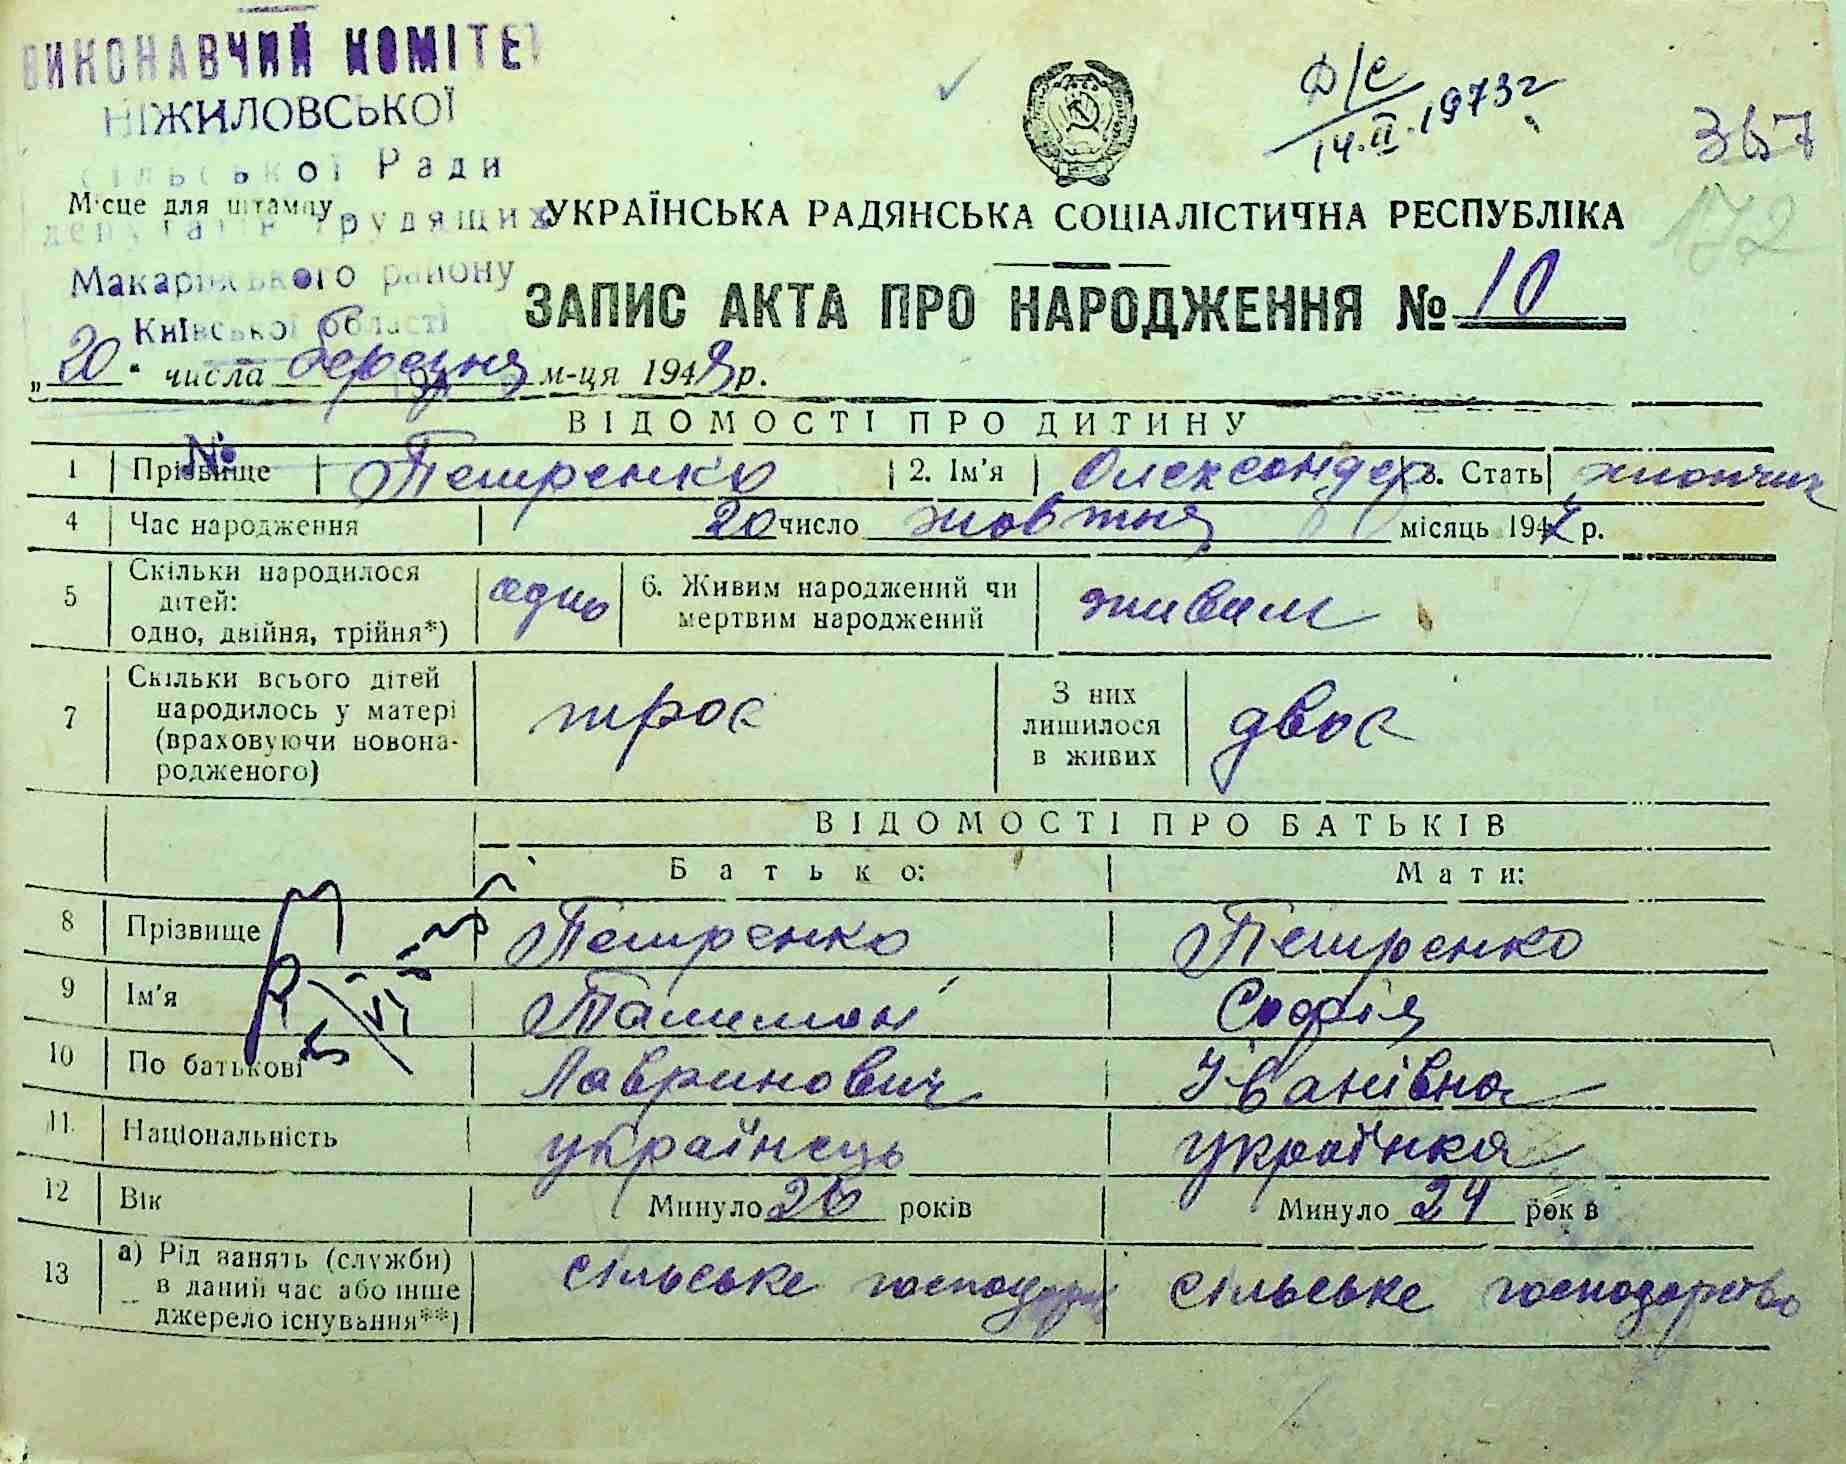 ВИКОНАВЧИЙ КОМІТЕТ
НІЖИЛОВСЬКОЇ
сільської Ради
Місце для штампу
депутатів трудящих
Макарівського району
Київської області
Д/С
14.II.1973г
367
172
УКРАЇНСЬКА РАДЯНСЬКА СОЦІАЛІСТИЧНА РЕСПУБЛІКА
ЗАПИС АКТА ПРО НАРОДЖЕННЯ № 10
„20“ числа березня м-ця 1948 р.
№
ВІДОМОСТІ ПРО ДИТИНУ
1 Прізвище Петренко 2. Ім'я Олександер 3. Стать хлопчик
4 Час народження 20 число жовтня місяць 1947 р.
5 Скільки народилося дітей: одно, двійня, трійня*) одно 6. Живим народжений чи мертвим народжений живим
7 Скільки всього дітей народилось у матері (враховуючи новонародженого) троє З них лишилося в живих двоє
ВІДОМОСТІ ПРО БАТЬКІВ
Батько: Мати:
8 Прізвище Петренко Петренко
9 Ім'я Софія
10 По батькові Лавринович Іванівна
11. Національність українець українка
12 Вік Минуло 26 років Минуло 24 рок в
13 а) Рід занять (служби) в даний час або інше джерело існування**) сільське сільське господарство